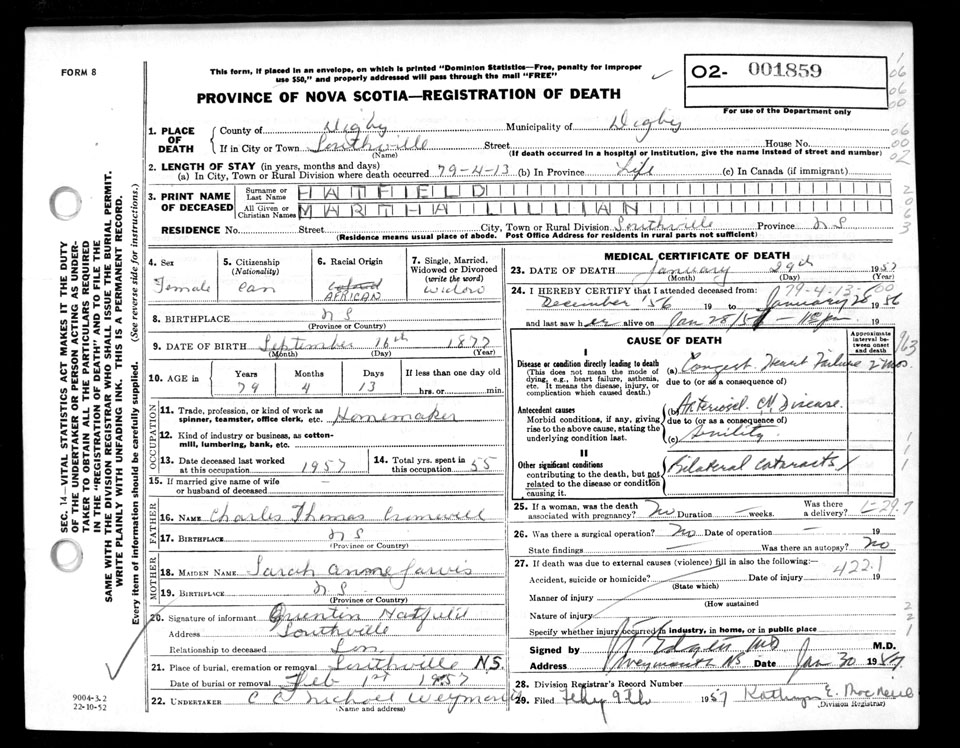 FORM 8
This form, if placed in an envelope, on which is printed "Dominion Statistics—Free, penalty for improper
use $50," and properly addressed will pass through the mail "FREE"
O2- 001859
For use of the Department only
PROVINCE OF NOVA SCOTIA—REGISTRATION OF DEATH
1. PLACE OF DEATH
County of Digby Municipality of Digby
If in City or Town Southville Street House No.
(Name) (If death occurred in a hospital or institution, give the name instead of street and number)
2. LENGTH OF STAY (in years, months and days)
(a) In City, Town or Rural Division where death occurred 79-4-13 (b) In Province Life (c) In Canada (if immigrant)
3. PRINT NAME OF DECEASED
Surname or Last Name HATFIELD
All Given or Christian Names MARTHA LILLIAN
RESIDENCE No. Street City, Town or Rural Division Southville Province N S
(Residence means usual place of abode. Post Office Address for residents in rural parts not sufficient)
4. Sex
Female
5. Citizenship
(Nationality)
Can
6. Racial Origin
AFRICAN
7. Single, Married, Widowed or Divorced
(write the word)
Widow
8. BIRTHPLACE N S
(Province or Country)
9. DATE OF BIRTH September 16th 1877
(Month) (Day) (Year)
10. AGE in
Years Months Days If less than one day old
79 4 13 hrs. or min.
OCCUPATION
11. Trade, profession, or kind of work as
spinner, teamster, office clerk, etc. Homemaker
12. Kind of industry or business, as cotton-
mill, lumbering, bank, etc.
13. Date deceased last worked
at this occupation 1957
14. Total yrs. spent in
this occupation 55
15. If married give name of wife
or husband of deceased —
FATHER
16. NAME Charles Thomas Cromwell
17. BIRTHPLACE N S
(Province or Country)
MOTHER
18. MAIDEN NAME Sarah Jarvis
19. BIRTHPLACE N S
(Province or Country)
20. Signature of informant Quentin Hatfield
Address Southville
Relationship to deceased Son
21. Place of burial, cremation or removal Southville N.S.
Date of burial or removal Feb 1st 1957
22. UNDERTAKER C C Weymouth
(Name and address)
MEDICAL CERTIFICATE OF DEATH
23. DATE OF DEATH January 29th 1957
(Month) (Day) (Year)
79-4-13-00
24. I HEREBY CERTIFY that I attended deceased from:
December '56 19 to January 28 1956
and last saw her alive on Jan 28/57 19
CAUSE OF DEATH
Approximate interval between onset and death
I
Disease or condition directly leading to death
(This does not mean the mode of
dying, e.g., heart failure, asthenia,
etc. It means the disease, injury, or
complication which caused death.)
(a) Congest. Heart Failure 2 mos.
due to (or as a consequence of)
Antecedent causes
Morbid conditions, if any, giving
rise to the above cause, stating the
underlying condition last.
(b) Arterioscl. Disease
due to (or as a consequence of)
(c) Senility
II
Other significant conditions
contributing to the death, but not
related to the disease or condition
causing it.
Bilateral cataracts
25. If a woman, was the death
associated with pregnancy? No Duration — weeks. Was there a delivery?
1-29.7
26. Was there a surgical operation? No Date of operation — 19
State findings — Was there an autopsy? No
27. If death was due to external causes (violence) fill in also the following:—
422.1
Accident, suicide or homicide? Date of injury 19
(State which)
Manner of injury
(How sustained
Nature of injury
Specify whether injury occurred in industry, in home, or in public place
Signed by Edgett MD M.D.
Address Weymouth NS Date Jan 30 1957
28. Division Registrar's Record Number
29. Filed Feby 9th 1957 Kathryn E. MacNeill
(Division Registrar)
SEC. 14—VITAL STATISTICS ACT MAKES IT THE DUTY
OF THE UNDERTAKER OR PERSON ACTING AS UNDER-
TAKER TO OBTAIN ALL THE PARTICULARS REQUIRED
IN THE "REGISTRATION OF DEATH" AND TO FILE THE
SAME WITH THE DIVISION REGISTRAR WHO SHALL ISSUE THE BURIAL PERMIT.
WRITE PLAINLY WITH UNFADING INK. THIS IS A PERMANENT RECORD.
Every item of information should be carefully supplied. (See reverse side for instructions.)
9004-3.2
22-10-52